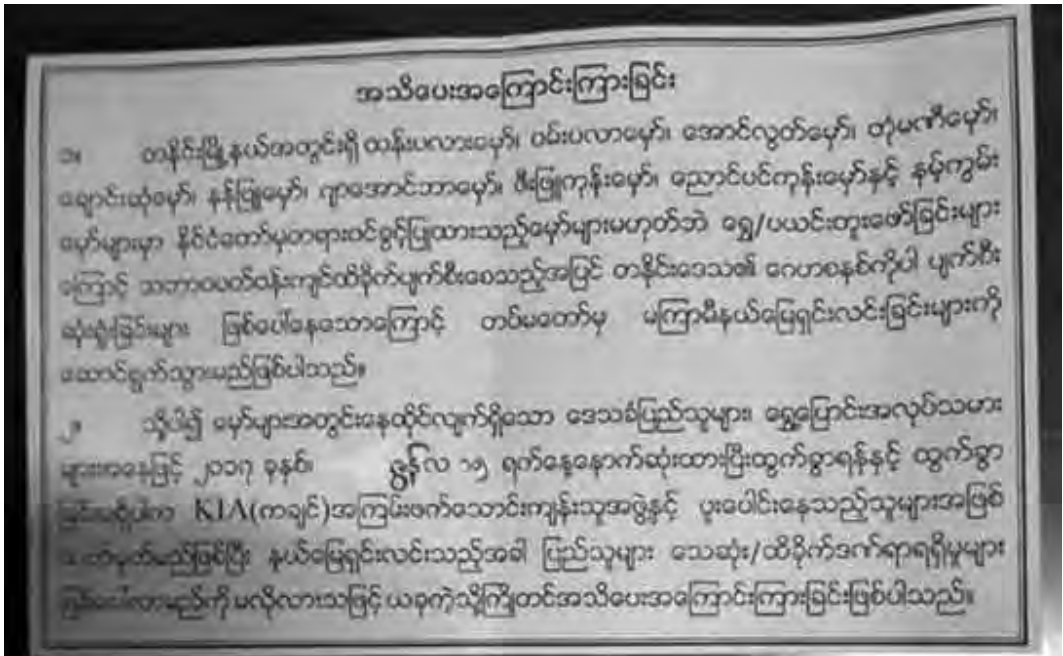 အသိပေးအကြောင်းကြားခြင်း
၁။ တနိုင်းမြို့နယ်အတွင်းရှိ ထန်းပလားမှော်၊ ဝမ်းပလာမှော်၊ အောင်လွတ်မှော်၊ တုံမဏီမှော်၊
ချောင်းဆုံမှော်၊ နန့်ဖြူမှော်၊ ဂျာအောင်ဘာမှော်၊ ဇီးဖြူကုန်းမှော်၊ ညောင်ပင်ကုန်းမှော်နှင့် နမ့်ကွမ်း
မှော်များမှာ နိုင်ငံတော်မှတရားဝင်ခွင့်ပြုထားသည့်မှော်များမဟုတ်ဘဲ ရွှေ/ပယင်းတူးဖော်ခြင်းများ
ကြောင့် သဘာဝပတ်ဝန်းကျင်ထိခိုက်ပျက်စီးစေသည့်အပြင် တနိုင်းဒေသ၏ ဂေဟစနစ်ကိုပါ ပျက်စီး
ဆုံးရှုံးခြင်းများ ဖြစ်ပေါ်နေသောကြောင့် တပ်မတော်မှ မကြာမီနယ်မြေရှင်းလင်းခြင်းများကို
ဆောင်ရွက်သွားမည်ဖြစ်ပါသည်။
၂။ သို့ပါ၍ မှော်များအတွင်းနေထိုင်လျက်ရှိသော ဒေသခံပြည်သူများ၊ ရွှေ့ပြောင်းအလုပ်သမား
များအနေဖြင့် ၂၀၁၇ ခုနှစ်၊ ဇွန်လ ၁၅ ရက်နေ့နောက်ဆုံးထားပြီးထွက်ခွာရန်နှင့် ထွက်ခွာ
ခြင်းမရှိပါက KIA(ကချင်)အကြမ်းဖက်သောင်းကျန်းသူအဖွဲ့နှင့် ပူးပေါင်းနေသည့်သူများအဖြစ်
သတ်မှတ်မည်ဖြစ်ပြီး နယ်မြေရှင်းလင်းသည့်အခါ ပြည်သူများ သေဆုံး/ထိခိုက်ဒဏ်ရာရရှိမှုများ
ဖြစ်ပေါ်လာမည်ကို မလိုလားသဖြင့် ယခုကဲ့သို့ကြိုတင်အသိပေးအကြောင်းကြားခြင်းဖြစ်ပါသည်။